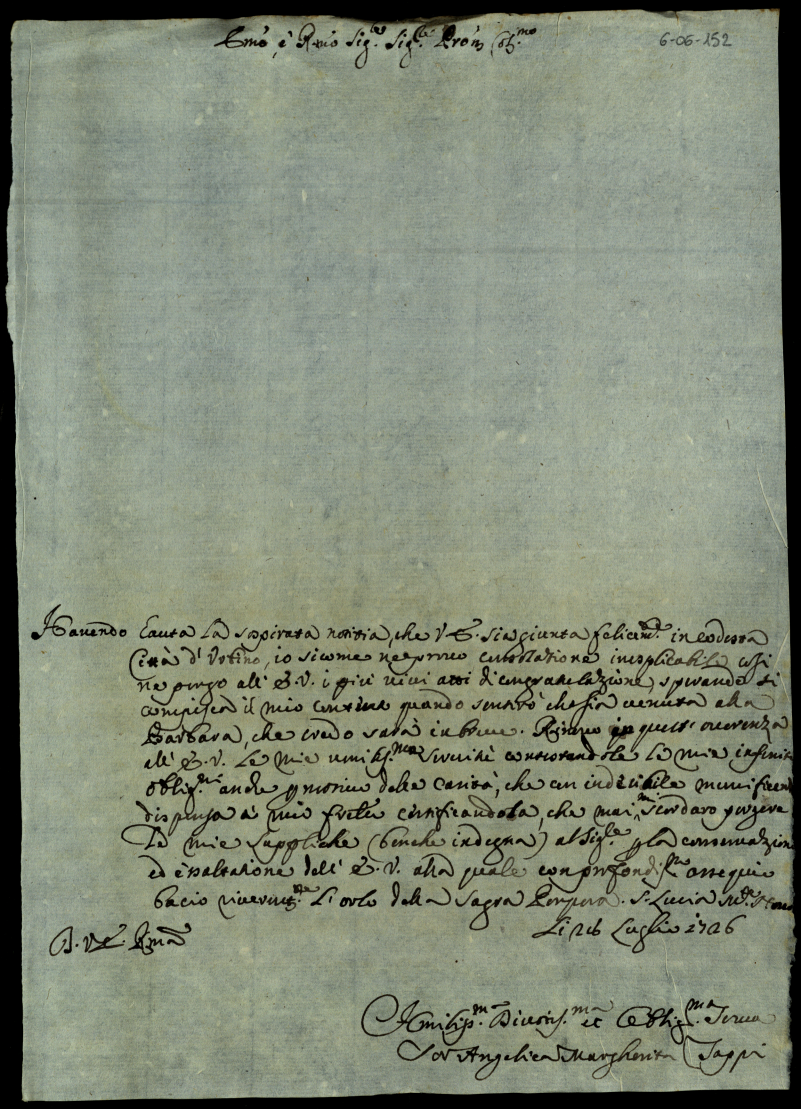 Emo, è Rmo Sig.re Sig.re Prōn Col.mo
6-06-152
Havendo hauta la sospirata notitia, che V.E. sia giunta felicem.te in codesta
Città d'Urbino, io sicome ne provo consolazione inesplicabile cosi
ne porgo all'E.V. i più vivi atti di congratulazione, sperando si
compisca il mio contento quando sentirò che sia venuta alla
Barbara, che credo sarà in breve. in quest'
all'E.V. le mie umiliss.me Servitù contestandole le mie infinite
oblig.ni anche p motivo della Carità, che con indicibile
dispensa à mio frello certificandola, che mai mi scordaro porgere
le mie suppliche (benche indegna) al Sig.re p la conservazion
ed esaltatione dell'E.V. alla quale con profondiss.mo ossequio
bacio riverentem.te L'orlo della Sagra Porpora. S.ta Lucia
Li 26 Luglio 1726
D.V.E. Rma
Humiliss.ma Divotiss.ma et Obblig.ma Serva
Sor Angelica Margherita Zappi